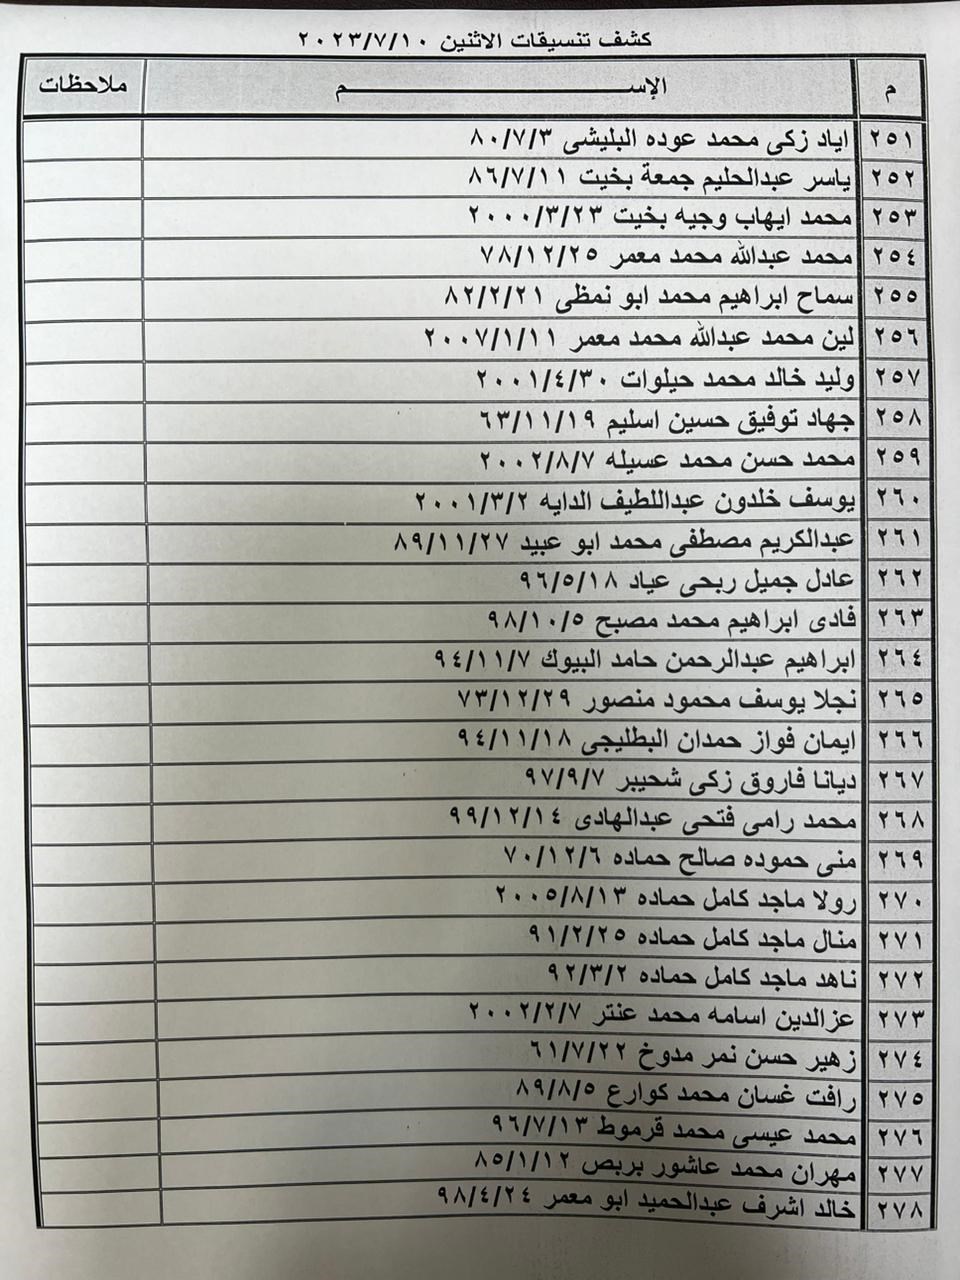 كشف تنسيقات الاثنين ٢٠٢٣/٧/١٠
م الإســـــــــــــــــم ملاحظات
٢٥١ اياد زكى محمد عوده البليشى ٨٠/٧/٣
٢٥٢ ياسر عبدالحليم جمعة بخيت ٨٦/٧/١١
٢٥٣ محمد ايهاب وجيه بخيت ٢٠٠٠/٣/٢٣
٢٥٤ محمد عبدالله محمد معمر ٧٨/١٢/٢٥
٢٥٥ سماح ابراهيم محمد ابو نمظى ٨٢/٢/٢١
٢٥٦ لين محمد عبدالله محمد معمر ٢٠٠٧/١/١١
٢٥٧ وليد خالد محمد حيلوات ٢٠٠١/٤/٣٠
٢٥٨ جهاد توفيق حسين اسليم ٦٣/١١/١٩
٢٥٩ محمد حسن محمد عسيله ٢٠٠٢/٨/٧
٢٦٠ يوسف خلدون عبداللطيف الدايه ٢٠٠١/٣/٢
٢٦١ عبدالكريم مصطفى محمد ابو عبيد ٨٩/١١/٢٧
٢٦٢ عادل جميل ربحى عياد ٩٦/٥/١٨
٢٦٣ فادى ابراهيم محمد مصبح ٩٨/١٠/٥
٢٦٤ ابراهيم عبدالرحمن حامد البيوك ٩٤/١١/٧
٢٦٥ نجلا يوسف محمود منصور ٧٣/١٢/٢٩
٢٦٦ ايمان فواز حمدان البطليجى ٩٤/١١/١٨
٢٦٧ ديانا فاروق زكى شحيبر ٩٧/٩/٧
٢٦٨ محمد رامى فتحى عبدالهادى ٩٩/١٢/١٤
٢٦٩ منى حموده صالح حماده ٧٠/١٢/٦
٢٧٠ رولا ماجد كامل حماده ٢٠٠٥/٨/١٣
٢٧١ منال ماجد كامل حماده ٩١/٢/٢٥
٢٧٢ ناهد ماجد كامل حماده ٩٢/٣/٢
٢٧٣ عزالدين اسامه محمد عنتر ٢٠٠٢/٢/٧
٢٧٤ زهير حسن نمر مدوخ ٦١/٧/٢٢
٢٧٥ رافت غسان محمد كوارع ٨٩/٨/٥
٢٧٦ محمد عيسى محمد قرموط ٩٦/٧/١٣
٢٧٧ مهران محمد عاشور بربص ٨٥/١/١٢
٢٧٨ خالد اشرف عبدالحميد ابو معمر ٩٨/٤/٢٤